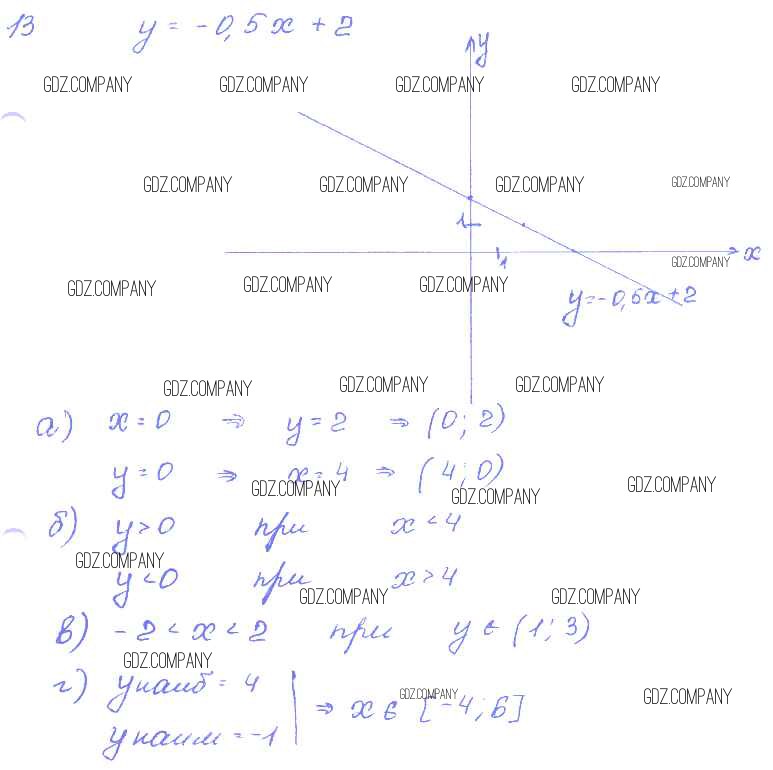 13 y = -0,5x + 2
y
GDZ.COMPANY GDZ.COMPANY GDZ.COMPANY GDZ.COMPANY
GDZ.COMPANY GDZ.COMPANY GDZ.COMPANY GDZ.COMPANY
1
x
1 GDZ.COMPANY
GDZ.COMPANY GDZ.COMPANY GDZ.COMPANY
y=-0,5x+2
GDZ.COMPANY GDZ.COMPANY GDZ.COMPANY
а) x=0 ⇒ y=2 ⇒ (0; 2)
y=0 ⇒ x=4 ⇒ (4; 0)
GDZ.COMPANY GDZ.COMPANY GDZ.COMPANY
б) y>0 при x<4
GDZ.COMPANY
y<0 при x>4
GDZ.COMPANY GDZ.COMPANY
в) -2<x<2 при y∈(1; 3)
GDZ.COMPANY
г) yнаиб = 4
GDZ.COMPANY GDZ.COMPANY
⇒ x∈[-4; 6]
yнаим = -1